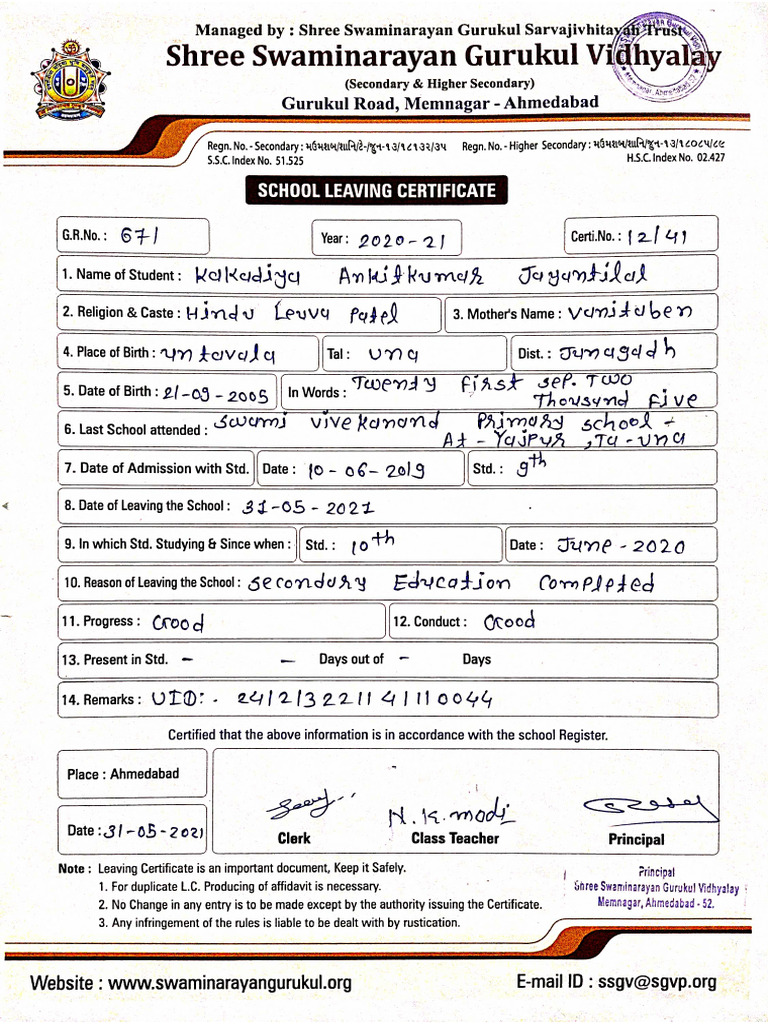 Managed by : Shree Swaminarayan Gurukul Sarvajivhitavah Trust
Shree Swaminarayan Gurukul Vidhyalay
(Secondary & Higher Secondary)
Gurukul Road, Memnagar - Ahmedabad
Regn. No. - Secondary : મઉમશબ/શાનિ/ટે-/જુન-૧૩/૧૮૧૩૨/૩૫ Regn. No. - Higher Secondary : મઉમશબ/શાનિ/જુન-૧૩/૧૮૦૮૫/૮૯
S.S.C. Index No. 51.525 H.S.C. Index No. 02.427
SCHOOL LEAVING CERTIFICATE
G.R.No. : 671 Year : 2020-21 Certi.No. : 12/41
1. Name of Student : Kakadiya Ankitkumar Jayantilal
2. Religion & Caste : Hindu Leuva Patel 3. Mother's Name : Vanituben
4. Place of Birth : Untavala Tal : Una Dist. : Junagadh
5. Date of Birth : 21-09-2005 In Words : Twenty First Sep. Two
Thousand Five
6. Last School attended : Swami Vivekanand Primary School -
At - Yajpur, Ta-Una
7. Date of Admission with Std. Date : 10-06-2019 Std. : 9th
8. Date of Leaving the School : 31-05-2021
9. In which Std. Studying & Since when : Std. : 10th Date : June-2020
10. Reason of Leaving the School : Secondury Education Completed
11. Progress : Good 12. Conduct : Good
13. Present in Std. - - Days out of - Days
14. Remarks : UID:- 24/2/322114/110044
Certified that the above information is in accordance with the school Register.
Place : Ahmedabad
Date : 31-05-2021
N.K.modi
Clerk Class Teacher Principal
Note : Leaving Certificate is an important document, Keep it Safely.
1. For duplicate L.C. Producing of affidavit is necessary.
2. No Change in any entry is to be made except by the authority issuing the Certificate.
3. Any infringement of the rules is liable to be dealt with by rustication.
Principal
Shree Swaminarayan Gurukul Vidhyalay
Memnagar, Ahmedabad - 52.
Website : www.swaminarayangurukul.org E-mail ID : ssgv@sgvp.org